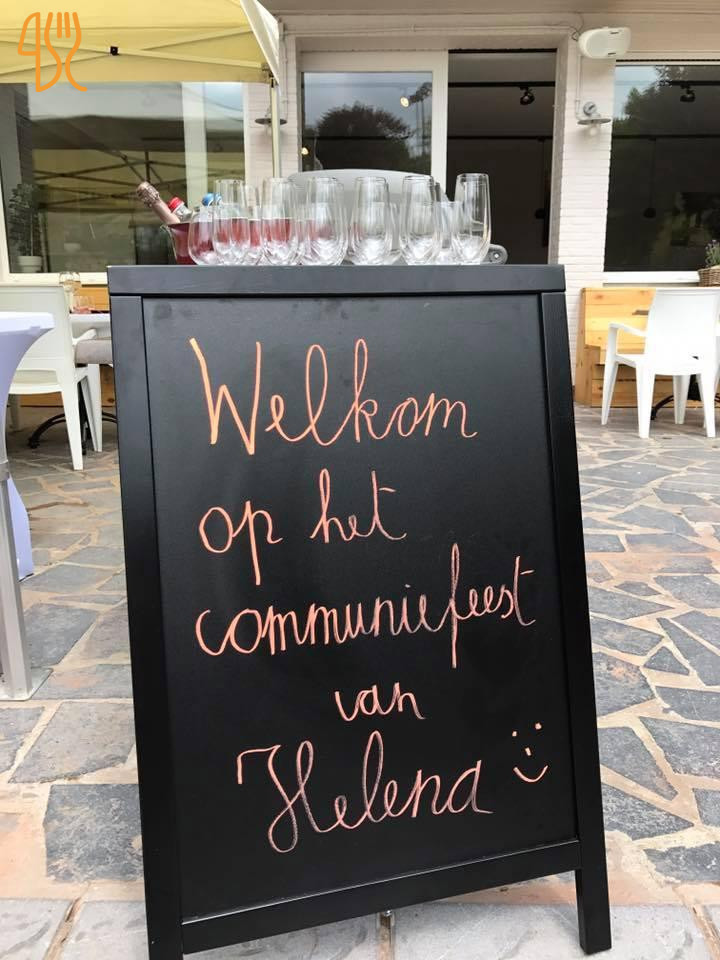 Welkom
op het
communiefeest
van
Helena